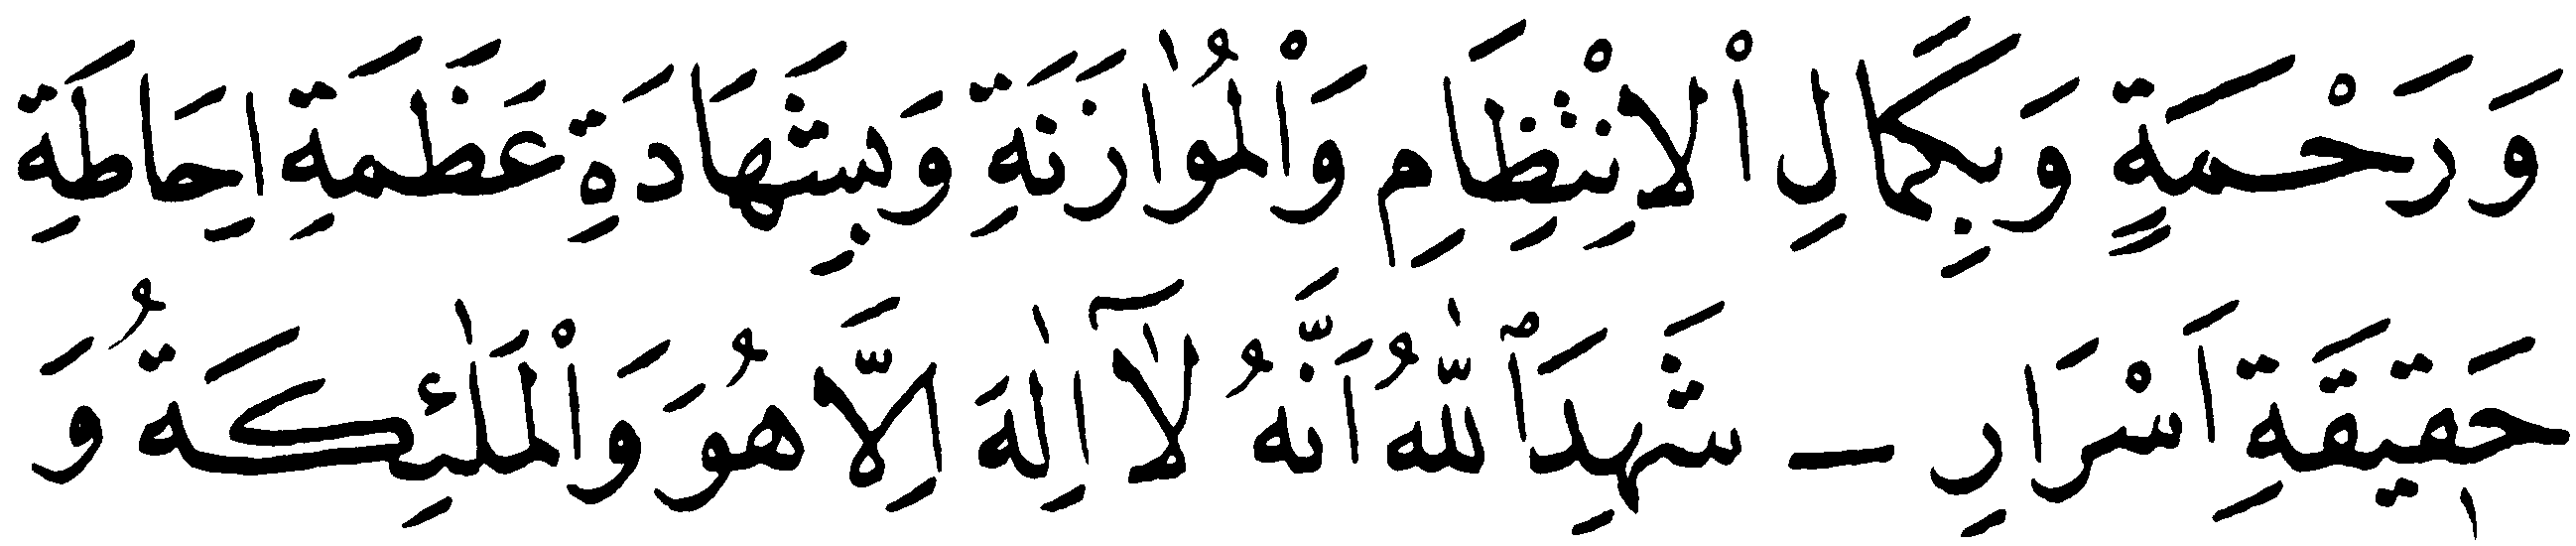 وَ رَحْمَةٍ وَبِكَمَالِ اْلاِنْتِظَامِ وَاْلمُوٰازَنَةِ وَبِشَهَادَةِ عَظَمَةِ اِحَاطَةِ
حَقٖيقَةِ اَسْرَارِ – شَهِدَ ٱللّٰهُ اَنَّهُ لَٓا اِلٰهَ اِلَّا هُوَ وَاْلمَلٰئِكَةُ وَ